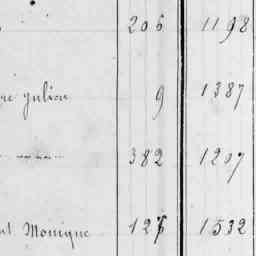 206 1198
re julien 9 1387
382 1207
nt Monique 127 1532